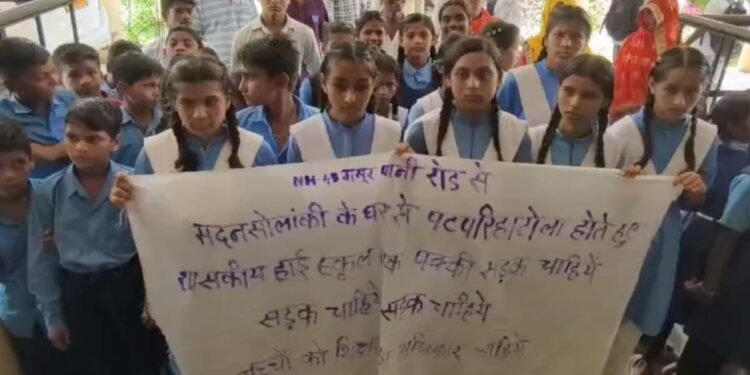 NH-43 ममूर पानी रोड से
मदनसोलांकी के घर से पटपरिहाटोला होते हुए
शासकीय हाई स्कूल तक पक्की सड़क चाहिये
सड़क चाहिये सड़क चाहिये
बच्चों को शिक्षा का अधिकार चाहिये